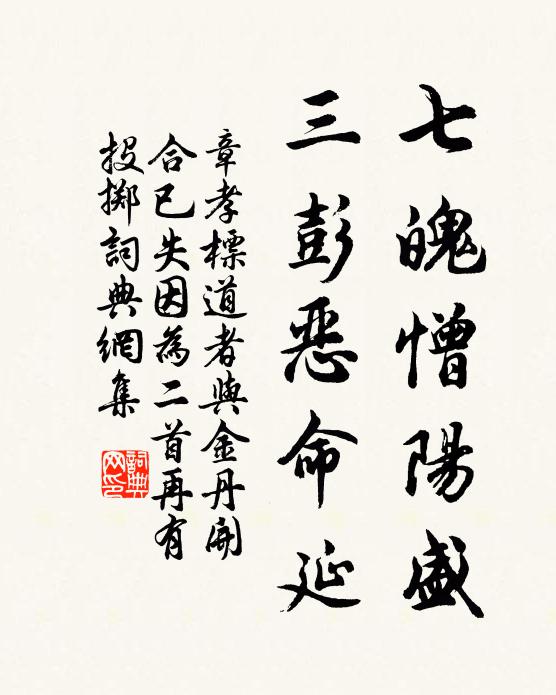 七魄憎陽盛
三彭惡命延
章孝標道者與金丹開
合已失因為二首再有
投擲詞典網集
詞典
网印